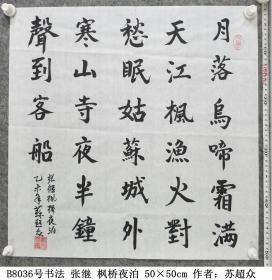 月落烏啼霜满
天江楓漁火對
愁眠姑蘇城外
寒山寺夜半鐘
聲到客船
张继枫桥夜泊
乙未年蘇超众
B8036号书法 张继 枫桥夜泊 50×50cm 作者：苏超众